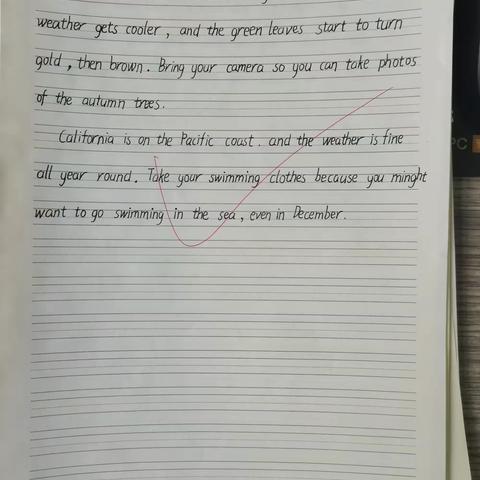 weather gets cooler, and the green leaves start to turn
gold, then brown. Bring your camera so you can take photos
of the autumn trees.
California is on the Pacific coast. and the weather is fine
all year round. Take your swimming clothes because you minght
want to go swimming in the sea, even in December.
PC